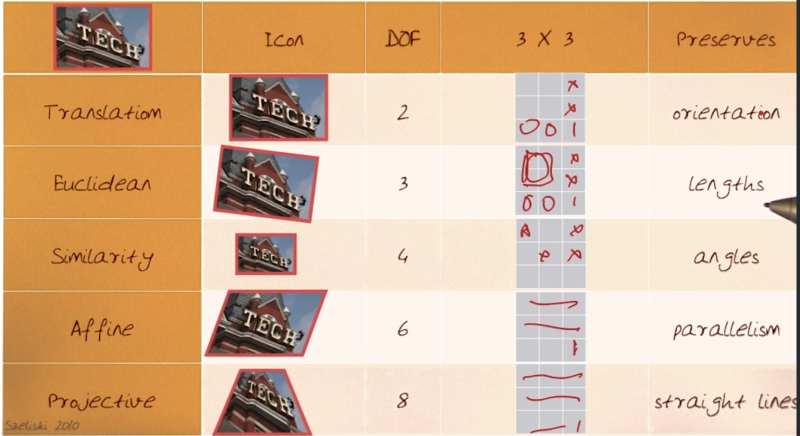 TECH Icon DOF 3 X 3 Preserves
Translation TECH 2 x orientation
x
0 0 1
Euclidean TECH 3 x lengths
x
0 0 1
Similarity TECH 4 x angles
x x
Affine TECH 6 1 parallelism
Projective TECH 8 1 straight lines
Szeliski 2010